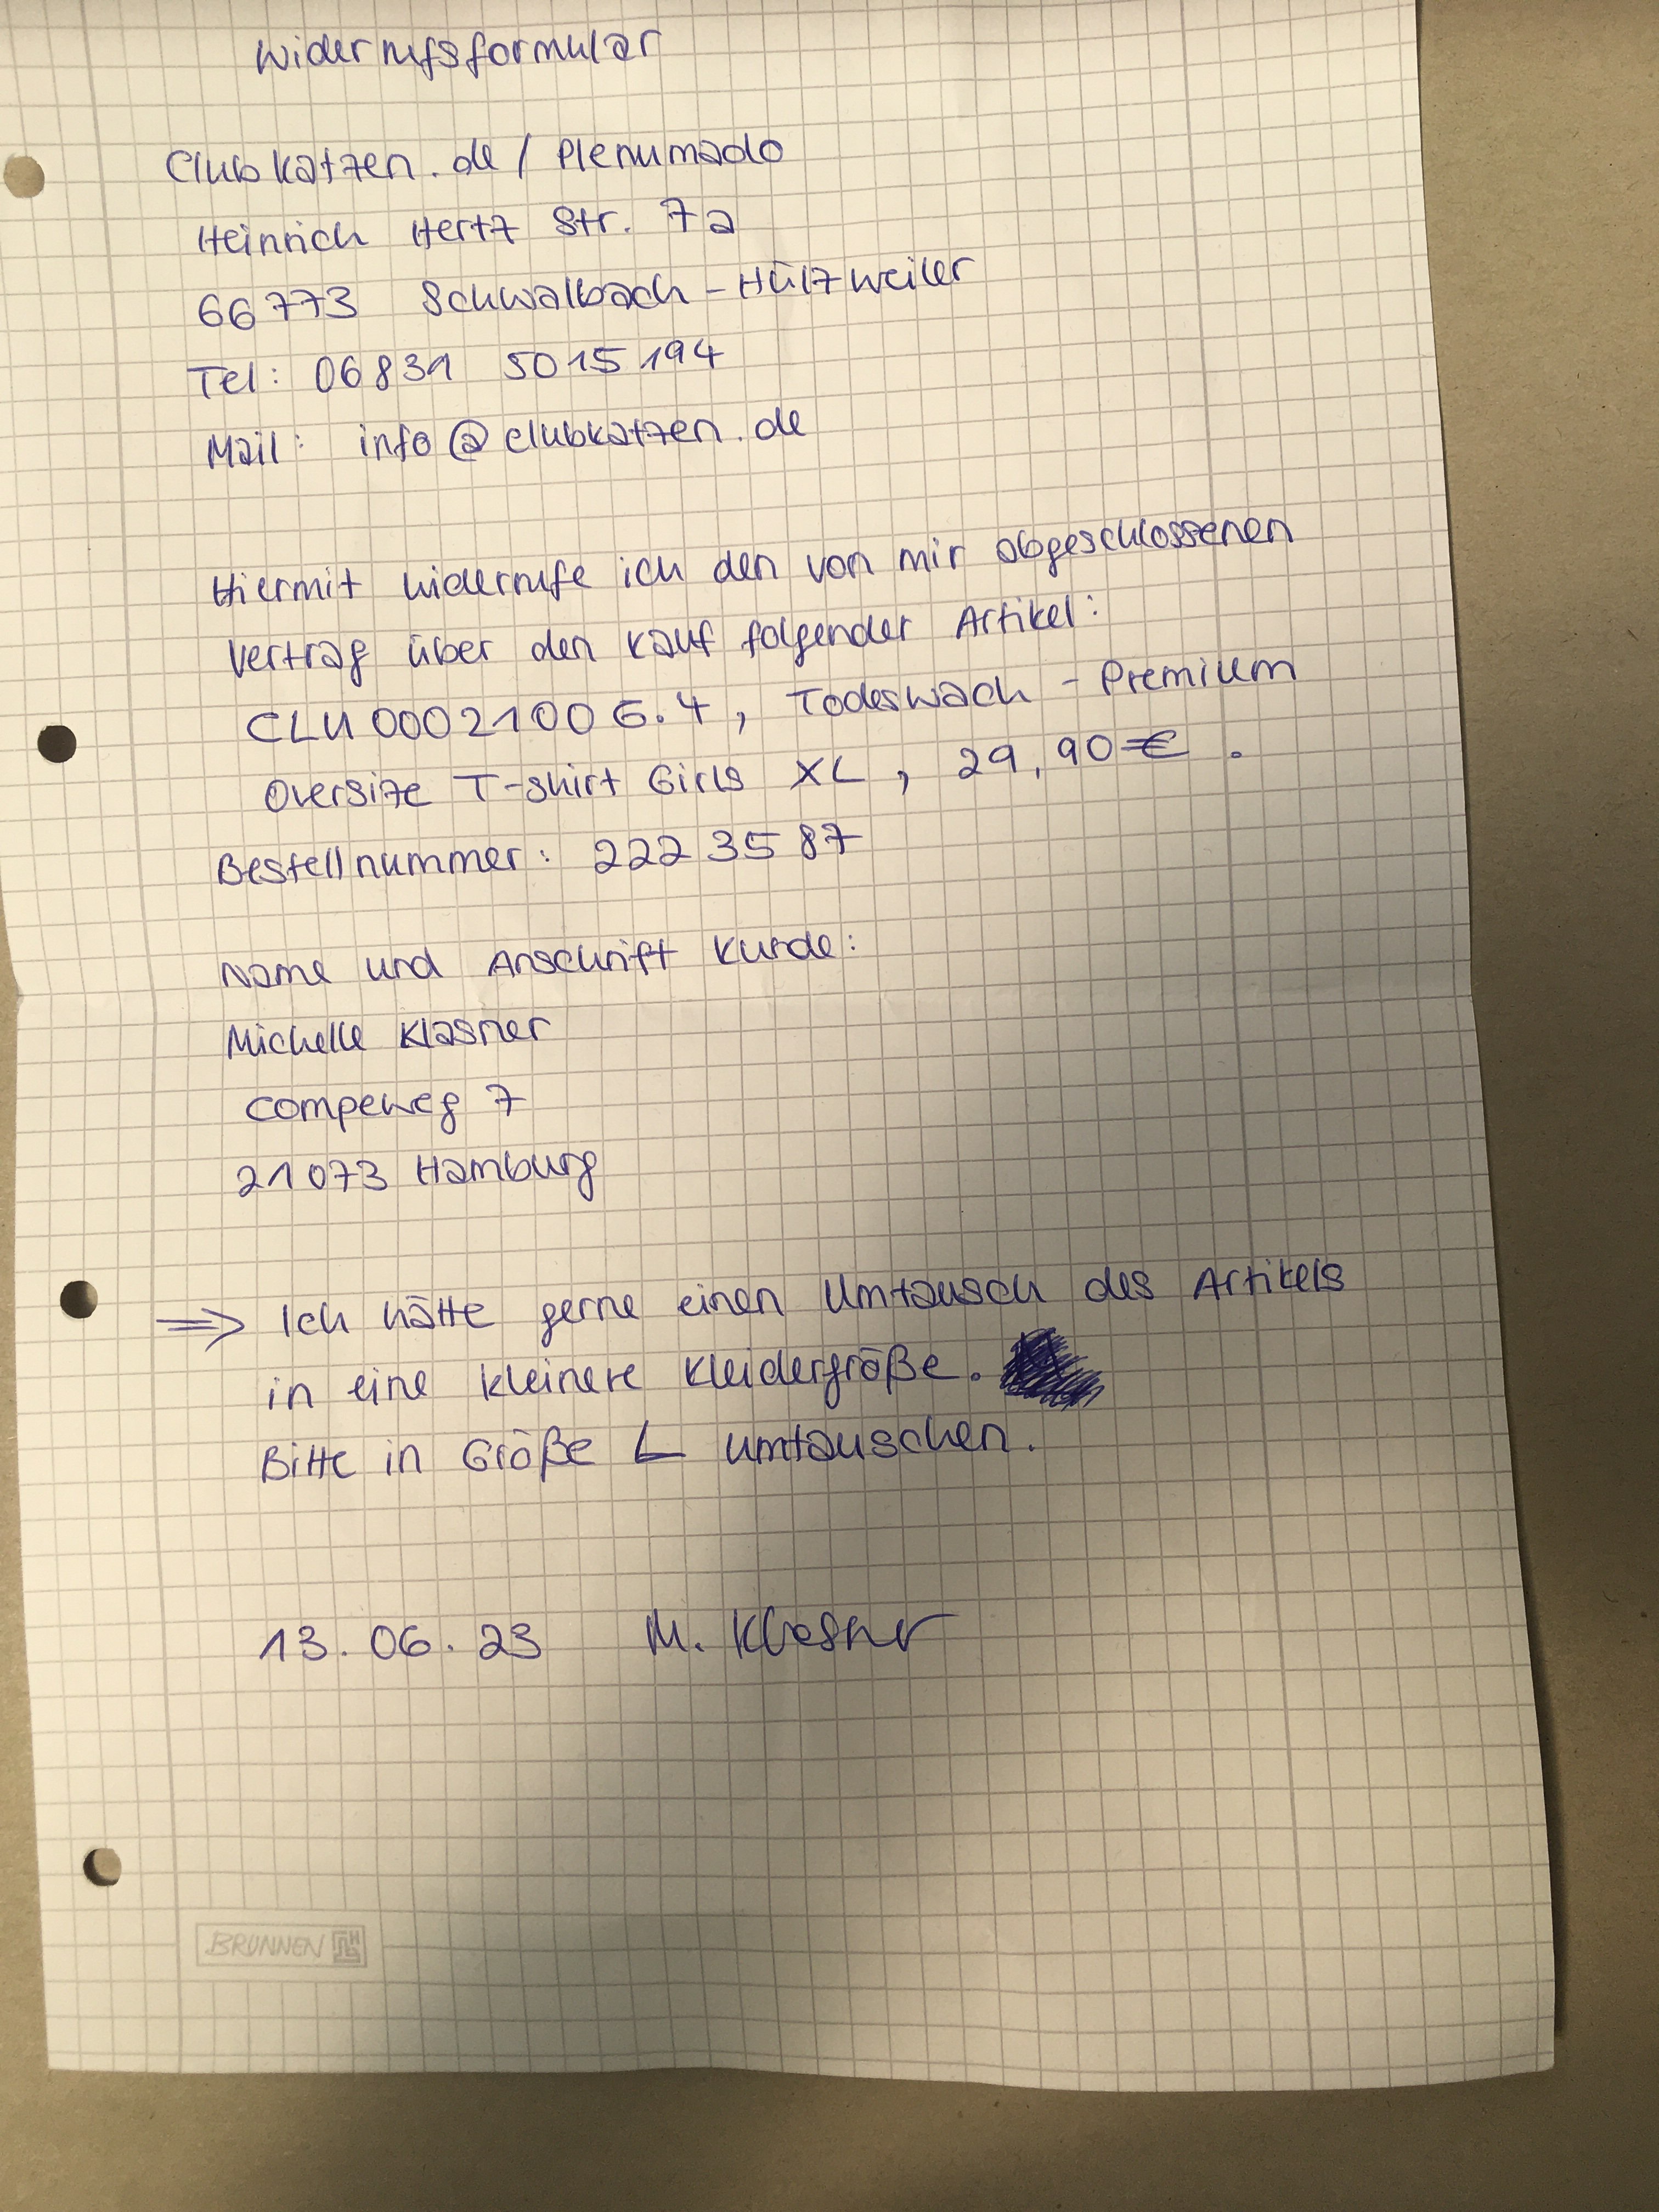 Widerrufsformular
Clubkatzen.de / Plenumado
Heinrich Hertz Str. 7a
66773 Schwalbach-Hülzweiler
Tel: 06831 5015194
Mail: info@clubkatzen.de
Hiermit widerrufe ich den von mir abgeschlossenen
Vertrag über den Kauf folgender Artikel:
CLU00021006.4, Todeswach - Premium
Oversize T-Shirt Girls XL, 29,90€.
Bestellnummer: 2223587
Name und Anschrift Kunde:
Michelle Klasner
Compeweg 7
21073 Hamburg
⇒ Ich hätte gerne einen Umtausch des Artikels
in eine kleinere Kleidergröße.
Bitte in Größe L umtauschen.
13.06.23 M. Klasner
BRUNNEN